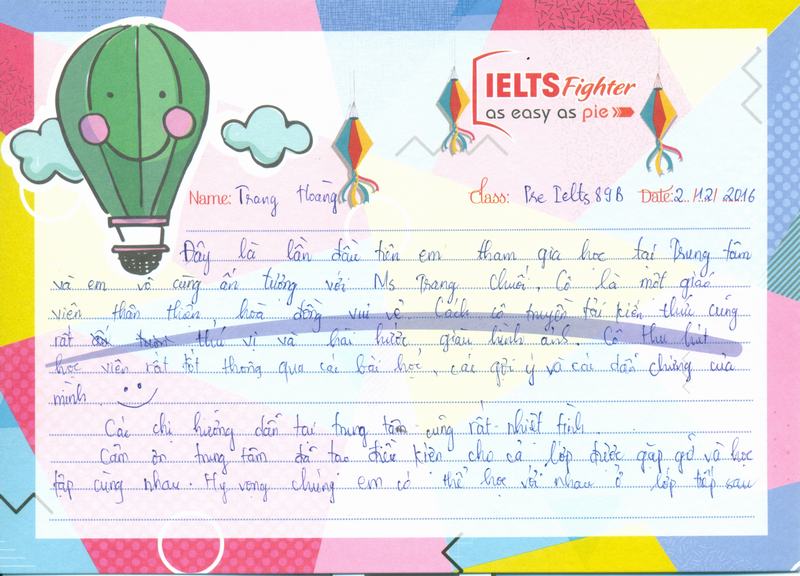 IELTS Fighter
as easy as pie
Name: Trang Hoàng Class: Pre Ielts 89B Date: 2.12/2016
Đây là lần đầu tiên em tham gia học tại Trung tâm
và em vô cùng ấn tượng với Ms Trang Chuối. Cô là một giáo
viên thân thiện, hoà đồng vui vẻ. Cách cô truyền tải kiến thức cũng
rất thú vị và hài hước, giàu hình ảnh. Cô thu hút
học viên rất tốt thông qua các bài học, các gợi ý và các dẫn chứng của
mình.
Các chị hướng dẫn tại trung tâm cũng rất nhiệt tình.
Cảm ơn trung tâm đã tạo điều kiện cho cả lớp được gặp gỡ và học
tập cùng nhau. Hy vọng chúng em có thể học với nhau ở lớp tiếp sau